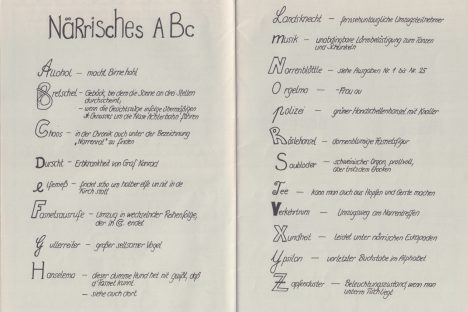 NäRRisches ABc
Alkohol – macht Birne hohl
Bretschel – Gebäck, bei dem die Sonne an drei Stellen
durchscheint,
– wenn die Gesichtszüge infolge übermäßigen
Genusses um die Nase Achterbahn fahren
Chaos – in der Chronik auch unter der Bezeichnung
"Narrenrat" zu finden
Durscht – Erbkrankheit von Graf Konrad
elfemeß – findet scho um halber elfe un nit in de
Kirch statt
Famelsausrufe – Umzug in wechselnder Reihenfolge,
der in endet
Gullerreiter – großer seltsamer Vogel
Hanselema – dieser dumme Hund het nit gwißt, daß
d'Famel kunnt
– siehe auch dort
Landsknecht – fernsehtaugliche Umzugsteilnehmer
musik – unabdingbare Lärmbelästigung zum Tanzen
und Schunkeln
Narrenblättle – siehe Ausgaben Nr. 1 bis Nr. 25
Orgelma – -Frau au
polizei – grüner Handschellenhansel mit Knaller
Rädlehansel – dornenblumige Fasnetsfigur
Saubloder – schweinischer Organ, prallvoll,
aber trotzdem trocken
Tee – kann mau auch aus Hopfen und Gerste machen
Verkehrtrum – Umzugsweg am Narrentreffen
Xundheit – leidet unter närrischen Eskapaden
Ypsilon – vorletzter Buchstabe im Alphabet
Zapfenduster – Beleuchtungszustand, wenn man
unterm Tisch liegt